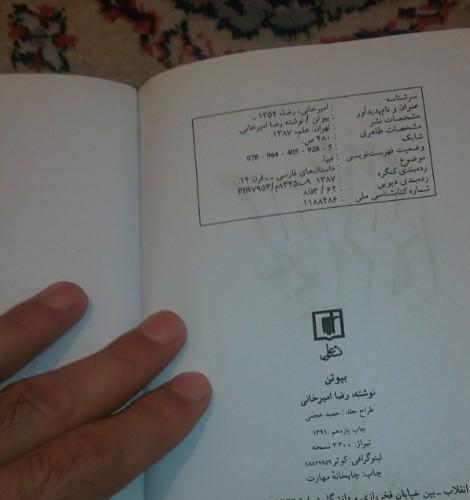 سرشناسه : امیرخانی، رضا، ۱۳۵۲ -
عنوان و نام‌پدیدآور : بیوتن / نوشته رضا امیرخانی.
مشخصات نشر : تهران: علم، ۱۳۸۷.
مشخصات ظاهری : ۴۸۰ ص.
شابک : 978 - 964 - 405 - 928 - 5
وضعیت فهرست‌نویسی : فیپا.
موضوع : داستان‌های فارسی -- قرن ۱۴.
رده‌بندی کنگره : ۱۳۸۷ ۹ب۸۳۴۵م/PIR۷۹۵۳
رده‌بندی دیویی : ۸فا۳ / ۶۲
شماره کتابشناسی ملی : ۱۱۸۸۴۸۶
نشر علم
بیوتن
نوشته، رضا امیرخانی
طراح جلد: حمید عجمی
چاپ یازدهم: ۱۳۹۱
تیراژ: ۳۳۰۰ نسخه
لیتوگرافی: کوثر ۸۸۸۲۹۹۵۹
چاپ: چاپخانهٔ مهارت
انقلاب - بین خیابان فخررازی و